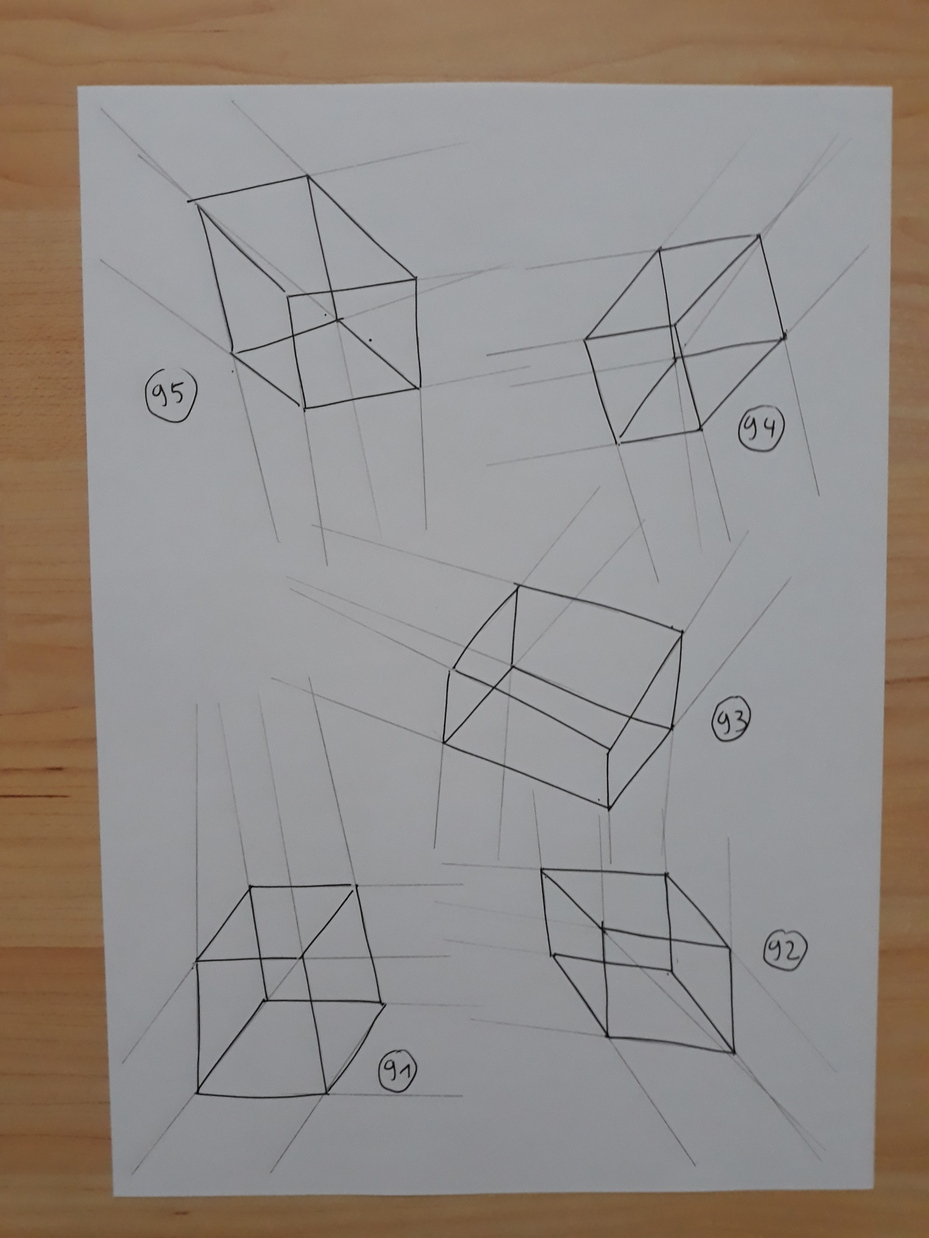 95
94
93
92
91